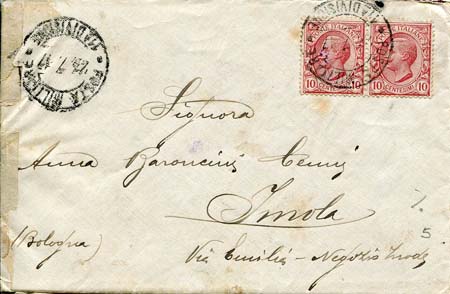 POSTA MILITARE
14 DIVISIONE
24.7.17
POSTE ITALIANE
10 CENTESIMI 10
10 CENTESIMI 10
Signora
Anna Baroncini Cenni
Imola
(Bologna)
Via Emilia - Negozio
5